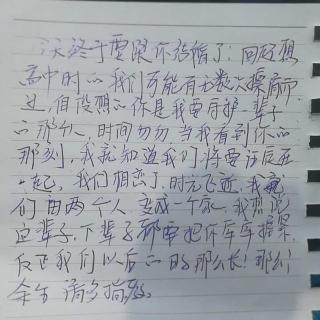 终于要娶你结婚了！回想
高中时的我们可能有无数次擦肩而
过，但没想的你是我要守护一辈子
的那个人，时间匆匆，当我看到你的
那刻，我就知道我们将要该在
一起，我们相恋了，时光飞逝，我
们由两个人，变成一个家，我想说
这辈子，下辈子都要把你牢牢握紧，
反正我们以后的日子那么长！那么！
余生请多指教。